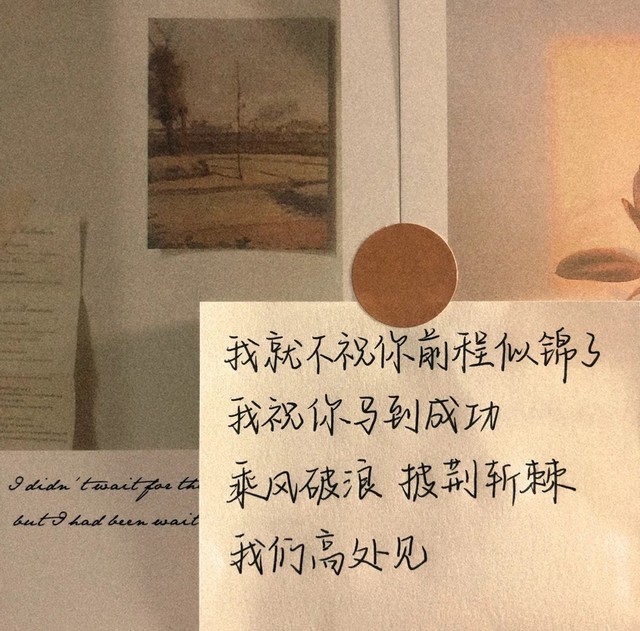 我就不祝你前程似锦了
我祝你马到成功
乘风破浪 披荆斩棘
我们高处见
I didn't wait for th
but I had been wait